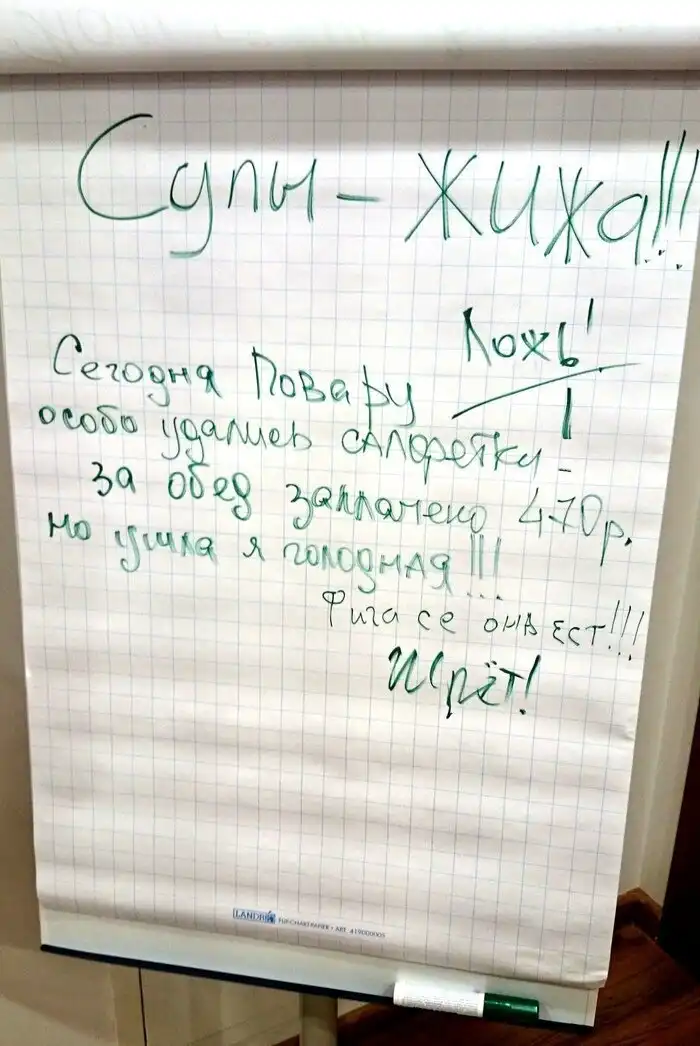 Супы - Жижа!!!
Ложь!
Сегодня Повару
особо удались САЛфЕТки -
за обед заплачено 470р.
но ушла я голодная!!!
Фига се она ест!!!
Жрёт!
LANDRÉ FLIPCHARTPAPIER • ART. 419000005